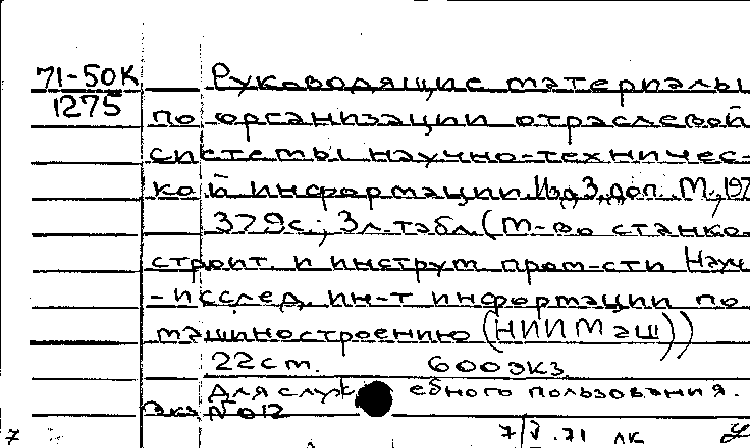 71-50К Руководящие материалы
1275
по организации отраслевой
системы научно-техничес-
кой информации. Изд. 3, доп. М., 197
379с.; 3л.табл. (М-во станко-
строит. и инструм. пром-сти Науч
-исслед. ин-т информации по
машиностроению (НИИМаш))
22см. 600экз
Для служебного пользования.
Экз №012
7/V.71 ЛК